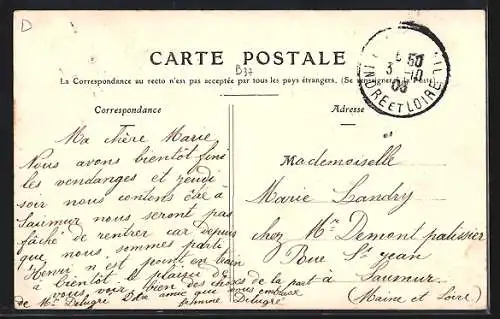 D
CARTE POSTALE
B37
La Correspondance au recto n'est pas acceptée par tous les pays étrangers. (Se renseigner à la poste)
50
3 -10
08
INDRE ET LOIRE
Correspondance
Adresse
Ma chère Marie
Nous avons bientôt fini
les vendanges et jeudi
soir nous contons être à
Saumur nous seront pas
fâché de rentrer car depuis
que nous sommes parti
Henri n est point en bain
à bientôt le plaisir de
vous voir bien des choses de la part à
de Mr Delugré amie qui vous embrasse
Delugré
Mademoiselle
Marie Landry
chez Mr Demont patissier
Rue St jean
Saumur
(Maine et Loire)